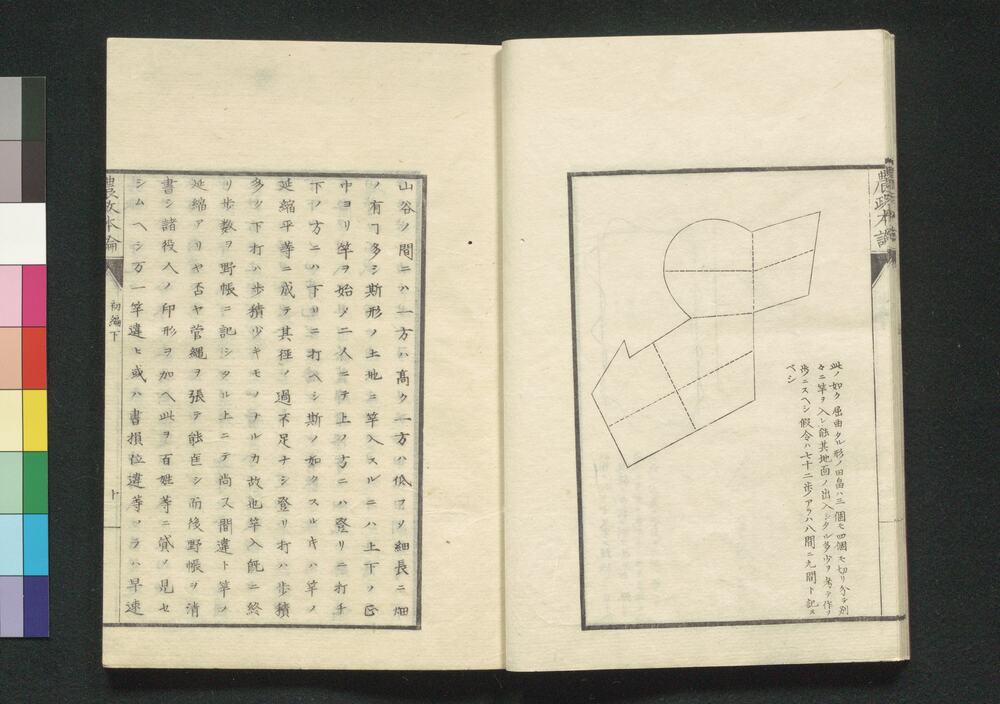 農政本論
此ノ如ク屈曲タル形ノ田畠ハ三個モ四個モ切リ分テ別
々ニ竿ヲ入レ能其地面ノ出入シタル多少ヲ考テ作ヲ
歩ニスヘシ假令ハ七十二歩アラハ八間ニ九間ト記ス
ベシ
山谷ノ間ニハ一方ハ高ク一方ハ低フソ細長ニ畑
ノ有ヿ多シ斯形ノ土地ニ竿入スルニハ上下ノ正
中ヨリ竿ヲ始メ二人ニテ上ノ方ニハ登リニ打チ
下ノ方ニハ下リニ打ヘシ斯ノ如クスルキハ竿ノ
延縮平等ニ成テ其徑ノ過不足ナシ登リ打ハ歩積
多ク下打ハ歩積少キモノナルカ故也竿入既ニ終
リ歩數ヲ野帳ニ記シタル上ニテ尚又間違ト竿ノ
延縮アリヤ否ヤ管縄ヲ張テ能匡シ而後野帳ヲ清
書シ諸役人ノ印形ヲ加ヘ此ヲ百姓等ニ貸ノ見セ
シムヘシ万一竿違ヒ或ハ書損位違等アラハ早速
農政本論
初編下
十